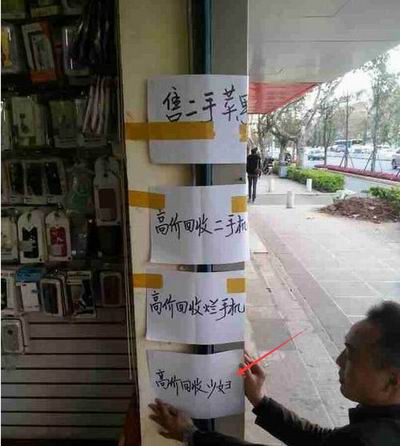 售二手苹果
高价回收二手机
高价回收烂手机
高价回收少妇